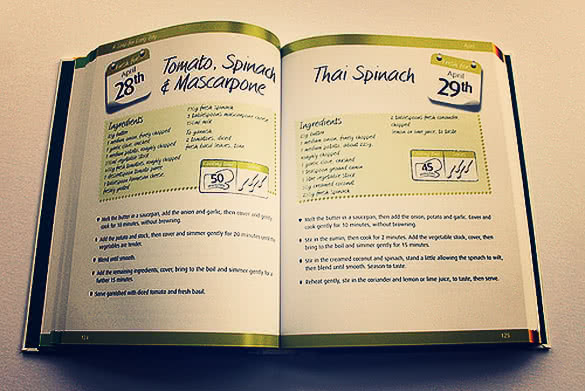 A Soup for Every Day
Fresh for
April
28th
Tomato, Spinach
& Mascarpone
Ingredients
25g butter
1 medium onion, finely chopped
1 garlic clove, crushed
1 medium potato, roughly chopped
vegetable stock
fresh tomatoes, roughly chopped
tomato purée
1 tablespoon Parmesan cheese,
freshly grated
fresh spinach
3 tablespoons mascarpone cheese
150ml milk
To garnish
2 tomatoes, diced
fresh basil leaves, torn
50
Melt the butter in a saucepan, add the onion and garlic, then cover and gently
cook for 10 minutes, without browning.
Add the potato and stock, then cover and simmer gently for 20 minutes until the
vegetables are tender.
Blend until smooth.
Add the remaining ingredients, cover, bring to the boil and simmer gently for a
further 15 minutes.
Serve garnished with diced tomato and fresh basil.
124
April
Thai Spinach
Fresh for
April
29th
Ingredients
butter
1 medium onion, finely chopped
1 medium potato, about 225g,
roughly chopped
1 garlic clove, crushed
1 teaspoon ground cumin
1 litre vegetable stock
50g creamed coconut
225g fresh spinach
2 tablespoons fresh coriander,
chopped
lemon or lime juice, to taste
45
Melt the butter in a saucepan, then add the onion, potato and garlic. Cover and
cook gently for 10 minutes, without browning.
Stir in the cumin, then cook for 2 minutes. Add the vegetable stock, cover, then
bring to the boil and simmer gently for 15 minutes.
Stir in the creamed coconut and spinach, stand a little allowing the spinach to wilt,
then blend until smooth. Season to taste.
Reheat gently, stir in the coriander and lemon or lime juice, to taste, then serve.
125